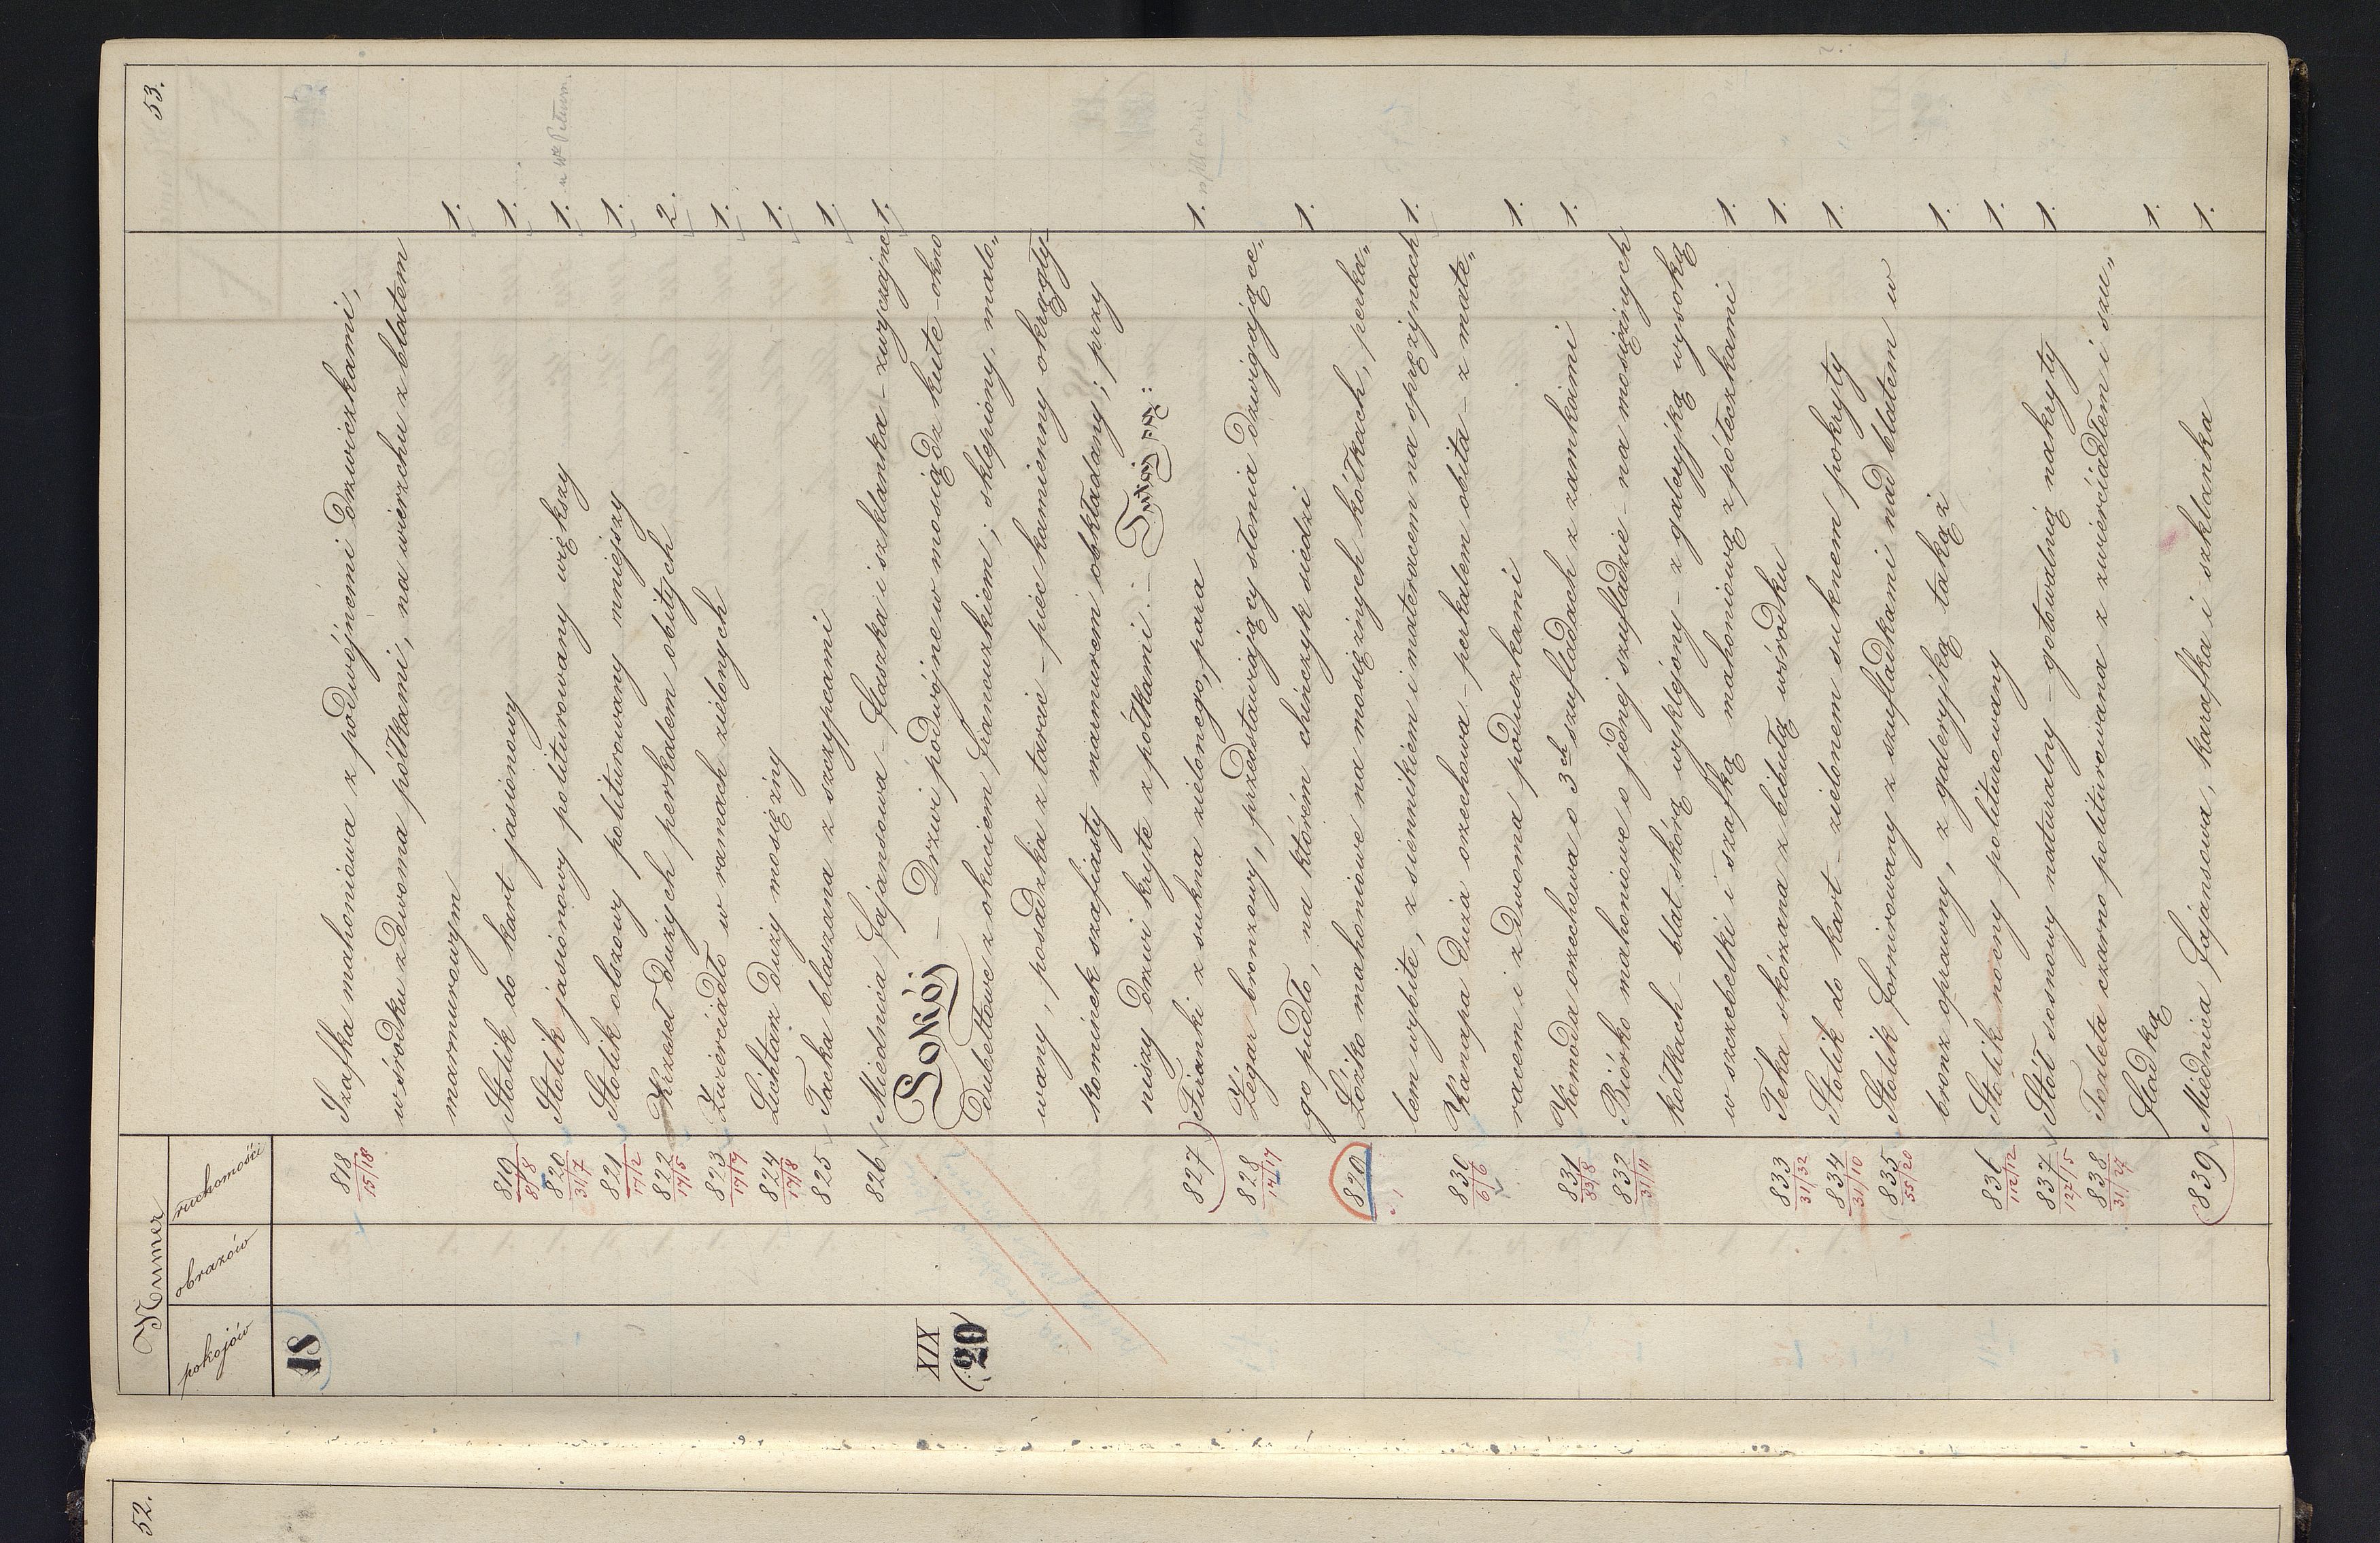 53.
Numer
pokojów obrazów ruchomości
18
818 Szafka mahoniowa z podwójnemi drzwiczkami,
15/18 wśrodku z dwoma półkami, na wierzchu z blatem
marmurowym 1.
819 Stolik do kart jasionowy 1.
8/8
820 Stolik jasionowy politurowany większy 1. u We
31/7
821 Stolik olszowy politurowany mniejszy 1.
17/2
822 Krzeseł dużych perkalem obitych 2.
17/5
823 Zwierciadło w ramach zielonych 1.
17/9
824 Lichtarz duży mosiężny 1.
17/8
825 Tacka blaszana z szczypcami 1.
826 Miednica fajansowa - flaszka i szklanka - zwyczajne 1.
XIX Pokój - Drzwi podwójne w mosiądz kute - okno
(20) dubeltowe z okuciem francuzkiem; sklepiony, malo„
wany, posadzka z tarcic - piec kamienny okrągły
kominek szafiasty marmurem obkładany; przy
niszy drzwi kryte z półkami. -
827 Firanki z sukna zielonego, para 1.
828 Zégar bronzowy, przedstawiający słonia dzwigające„
14/17 go pudło, na którém chińczyk siedzi 1.
829 Łóżko mahoniowe na mosiężnych kółkach, perka„
lem wybite, z siennikiem i materacem na sprężynach 1.
830 Kanapa duża orzechowa - perkalem obita - z mate„
6/6 racem i z dwoma poduszkami 1.
831 Komoda orzechowa o 3ch szufladach z zamkami 1.
83/8
832 Biórko mahoniowe o jednej szufladzie - na mosiężnych
31/11 kółkach - blat skórą wyklejony - z galeryjką wysoką
w szczebelki i szafką mahoniową z półeczkami 1.
833 Teka skórzana z bibułą wśrodku 1.
31/32
834 Stolik do kart - zielonem suknem pokryty 1.
31/10
835 Stolik fornirowany z szufladkami nad blatem w
55/20 bronz oprawny, z galeryjką takąż 1.
836 Stolik nocny politurowany 1.
112/12
837 Stół sosnowy naturalny - gotowalnią nakryty 1.
127/5
838 Toaleta czarno politurowana z zwierciadłem i szu„
31/27 fladką 1.
839 Miednica fajansowa, karafka i szklanka 1.
52.